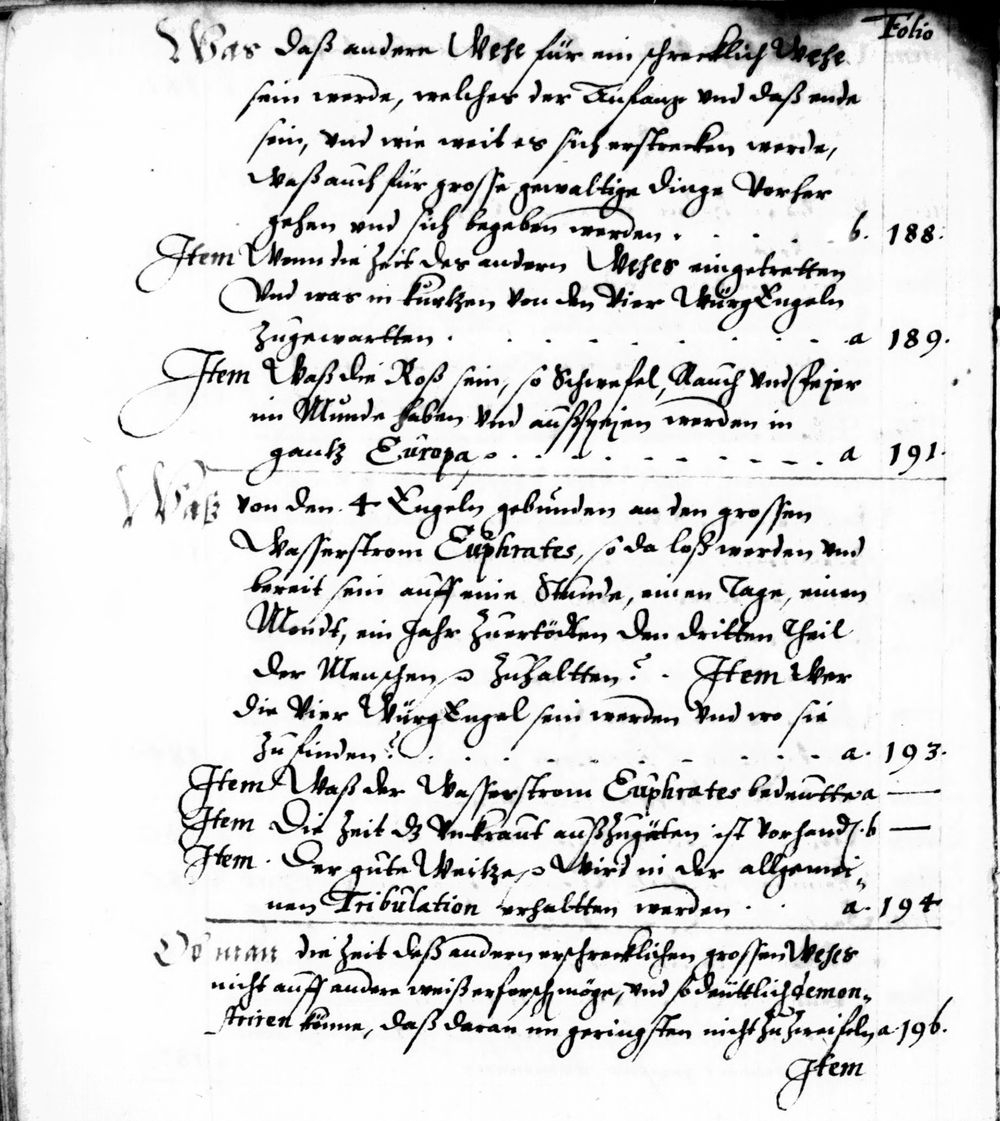 Folio
Was daß andere Wehe für ein schrecklich Wehe
sein werde, welches der Anfang vnd daß ende
sein, vnd wie weit es sich erstrecken werde,
Waß auch für grosse gewaltige dinge Vorher
gehen vnd sich begeben werden . . . . . b. 188.
Item Wenn die Zeit des andern Wehes eingetretten
Vnd was in kurtzen von den Vier WürgEngeln
Zugewartten . . . . . . . . . a 189.
Item Waß die Roß sein, so Schwefel, Rauch vnd Fejer
im Munde haben vnd außspejen werden in
gantz Europa . . . . . . . . . a 191.
Waß von den 4 Engeln gebunden an den grossen
Wasserstrom Euphrates, so da loß werden vnd
bereit sein auff eine Stunde, einen Tage, einen
Mondt, ein Jahr Zuertödten den dritten Theil
der Menschen Zuhaltten? . Item Wer
die Vier WürgEngel sein werden vnd wo sie
Zufinden? . . . . . . . . . a. 193.
Item Waß der Wasserstrom Euphrates bedeutte a —
Item Die Zeit dz Vnkraut außzugäten ist vorhand. b —
Item . Der gute Weitze Wird in der allgemei-
nen Tribulation erhaltten werden . . a. 194
Ob man die Zeit deß andern erschrecklichen grossen Wehes
nicht auff andere weiß erforsch möge, vnd so deüttlich demon-
striren könne, daß daran im geringsten nicht Zu Zweifeln a. 196.
Item